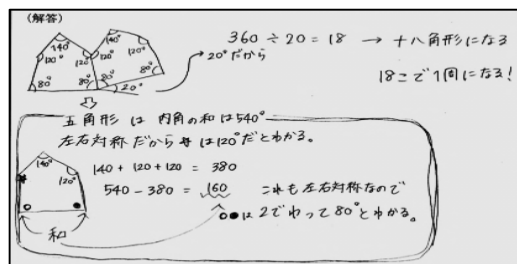 (解答)
140°
120°
80°
120°
80°
140°
120°
120°
80°
80°
20°
20°だから
360÷20=18 → 十八角形になる
18こで1周になる!
五角形は 内角の和は540°
左右対称だから★は120°だとわかる。
140+120+120=380
540-380=160 これも左右対称なので
○●は2でわって80°とわかる。
140°
120°
★
○ ●
和